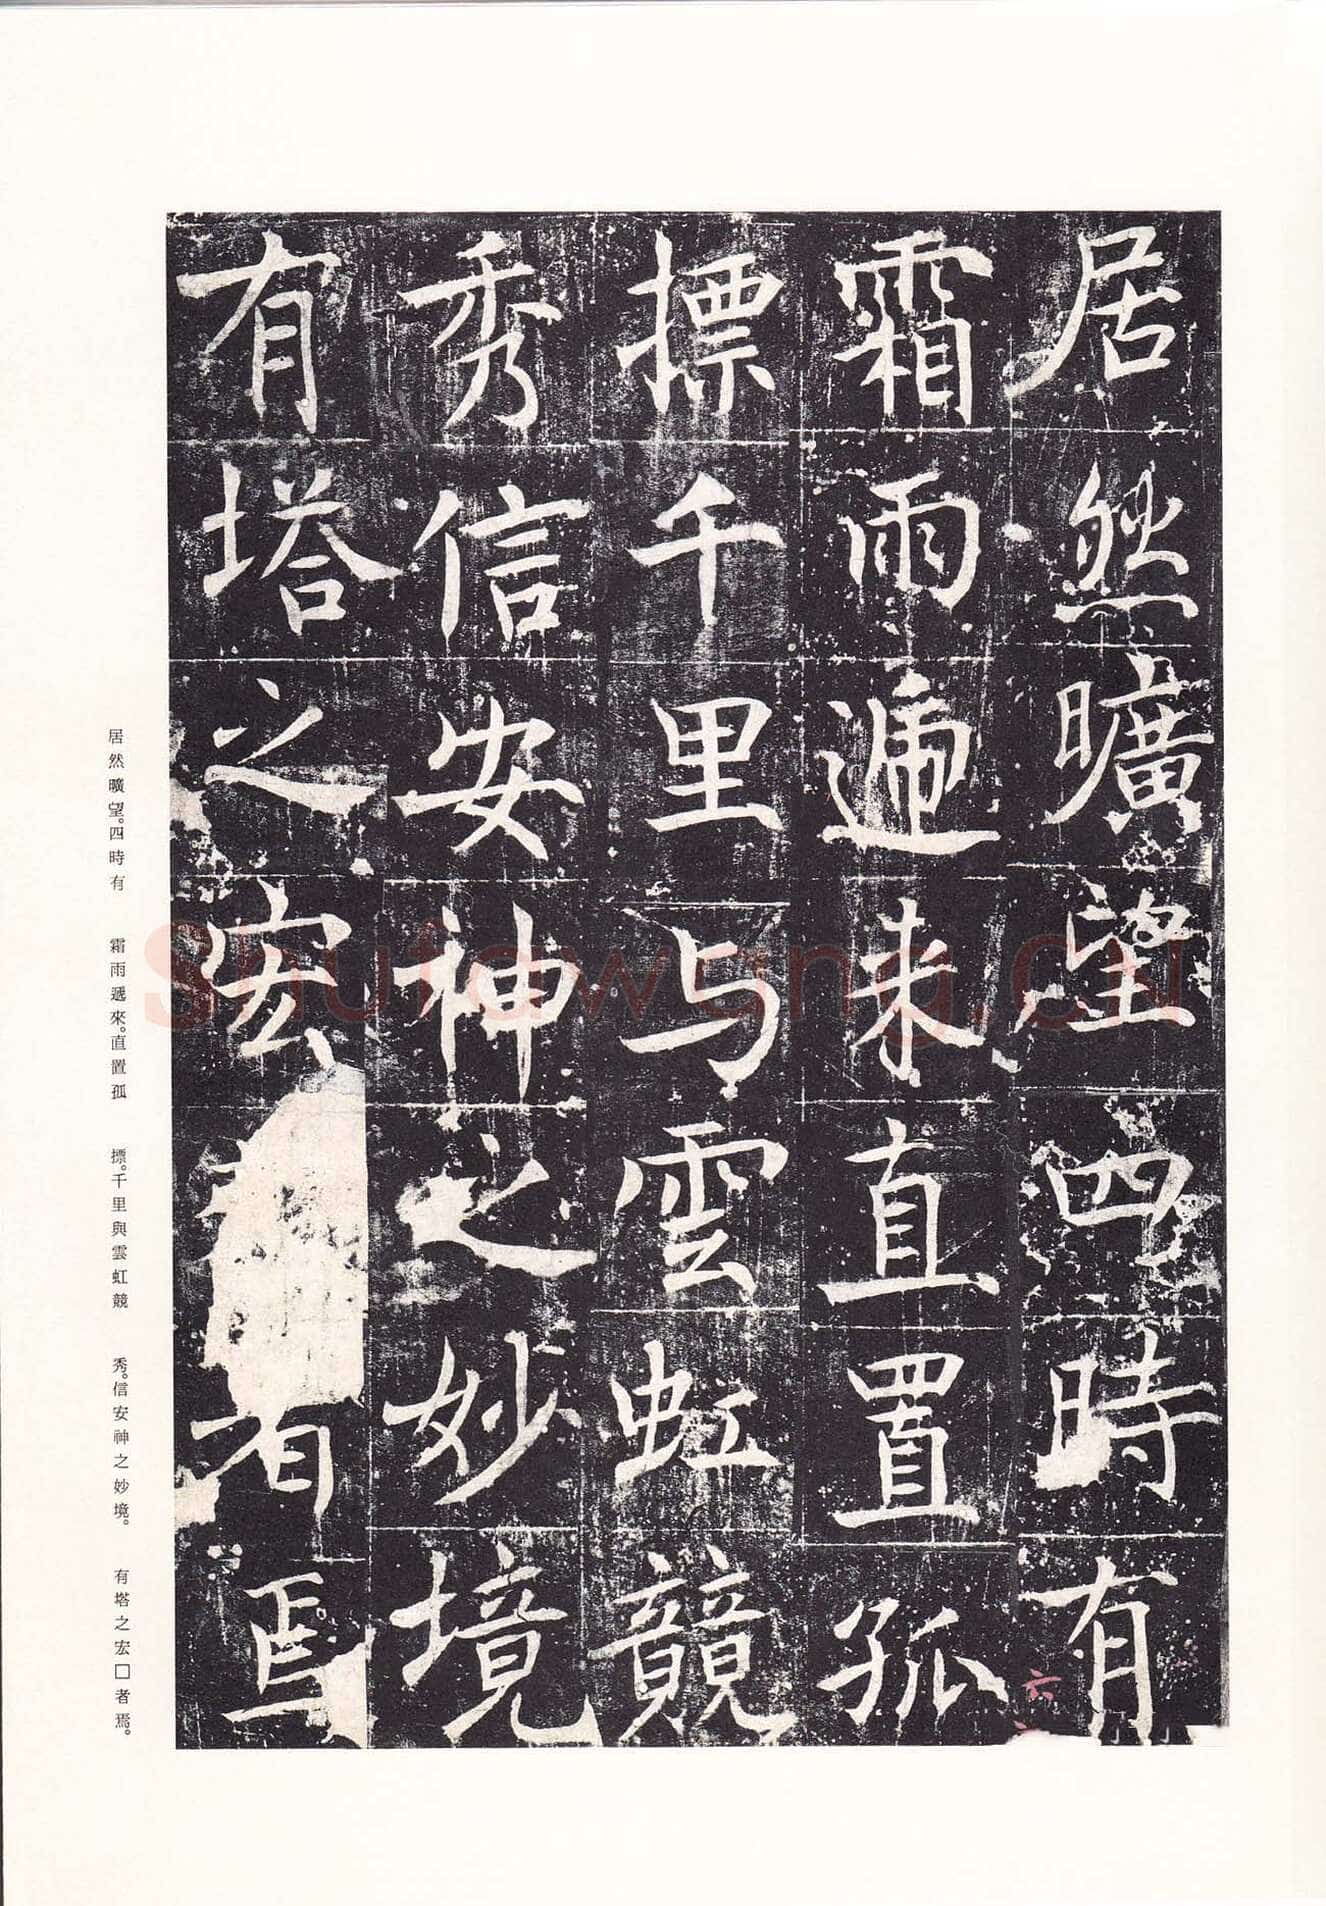 居然曠望四時有
霜雨遞来直置孤
摽千里与雲虹競
秀信安神之妙境
有塔之宏者焉
六
居然曠望。四時有
霜雨遞來。直置孤
摽。千里與雲虹競
秀。信安神之妙境。
有塔之宏□者焉。
shufawang.cn